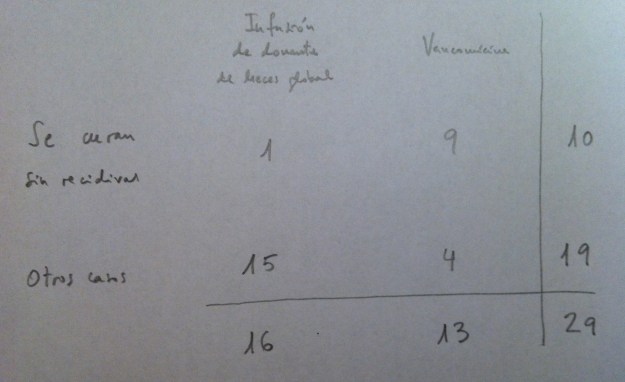 Infusión
de donante
de heces global
Vancomicina
Se curan
sin recidivar
1 9 10
Otros casos
15 4 19
16 13 29